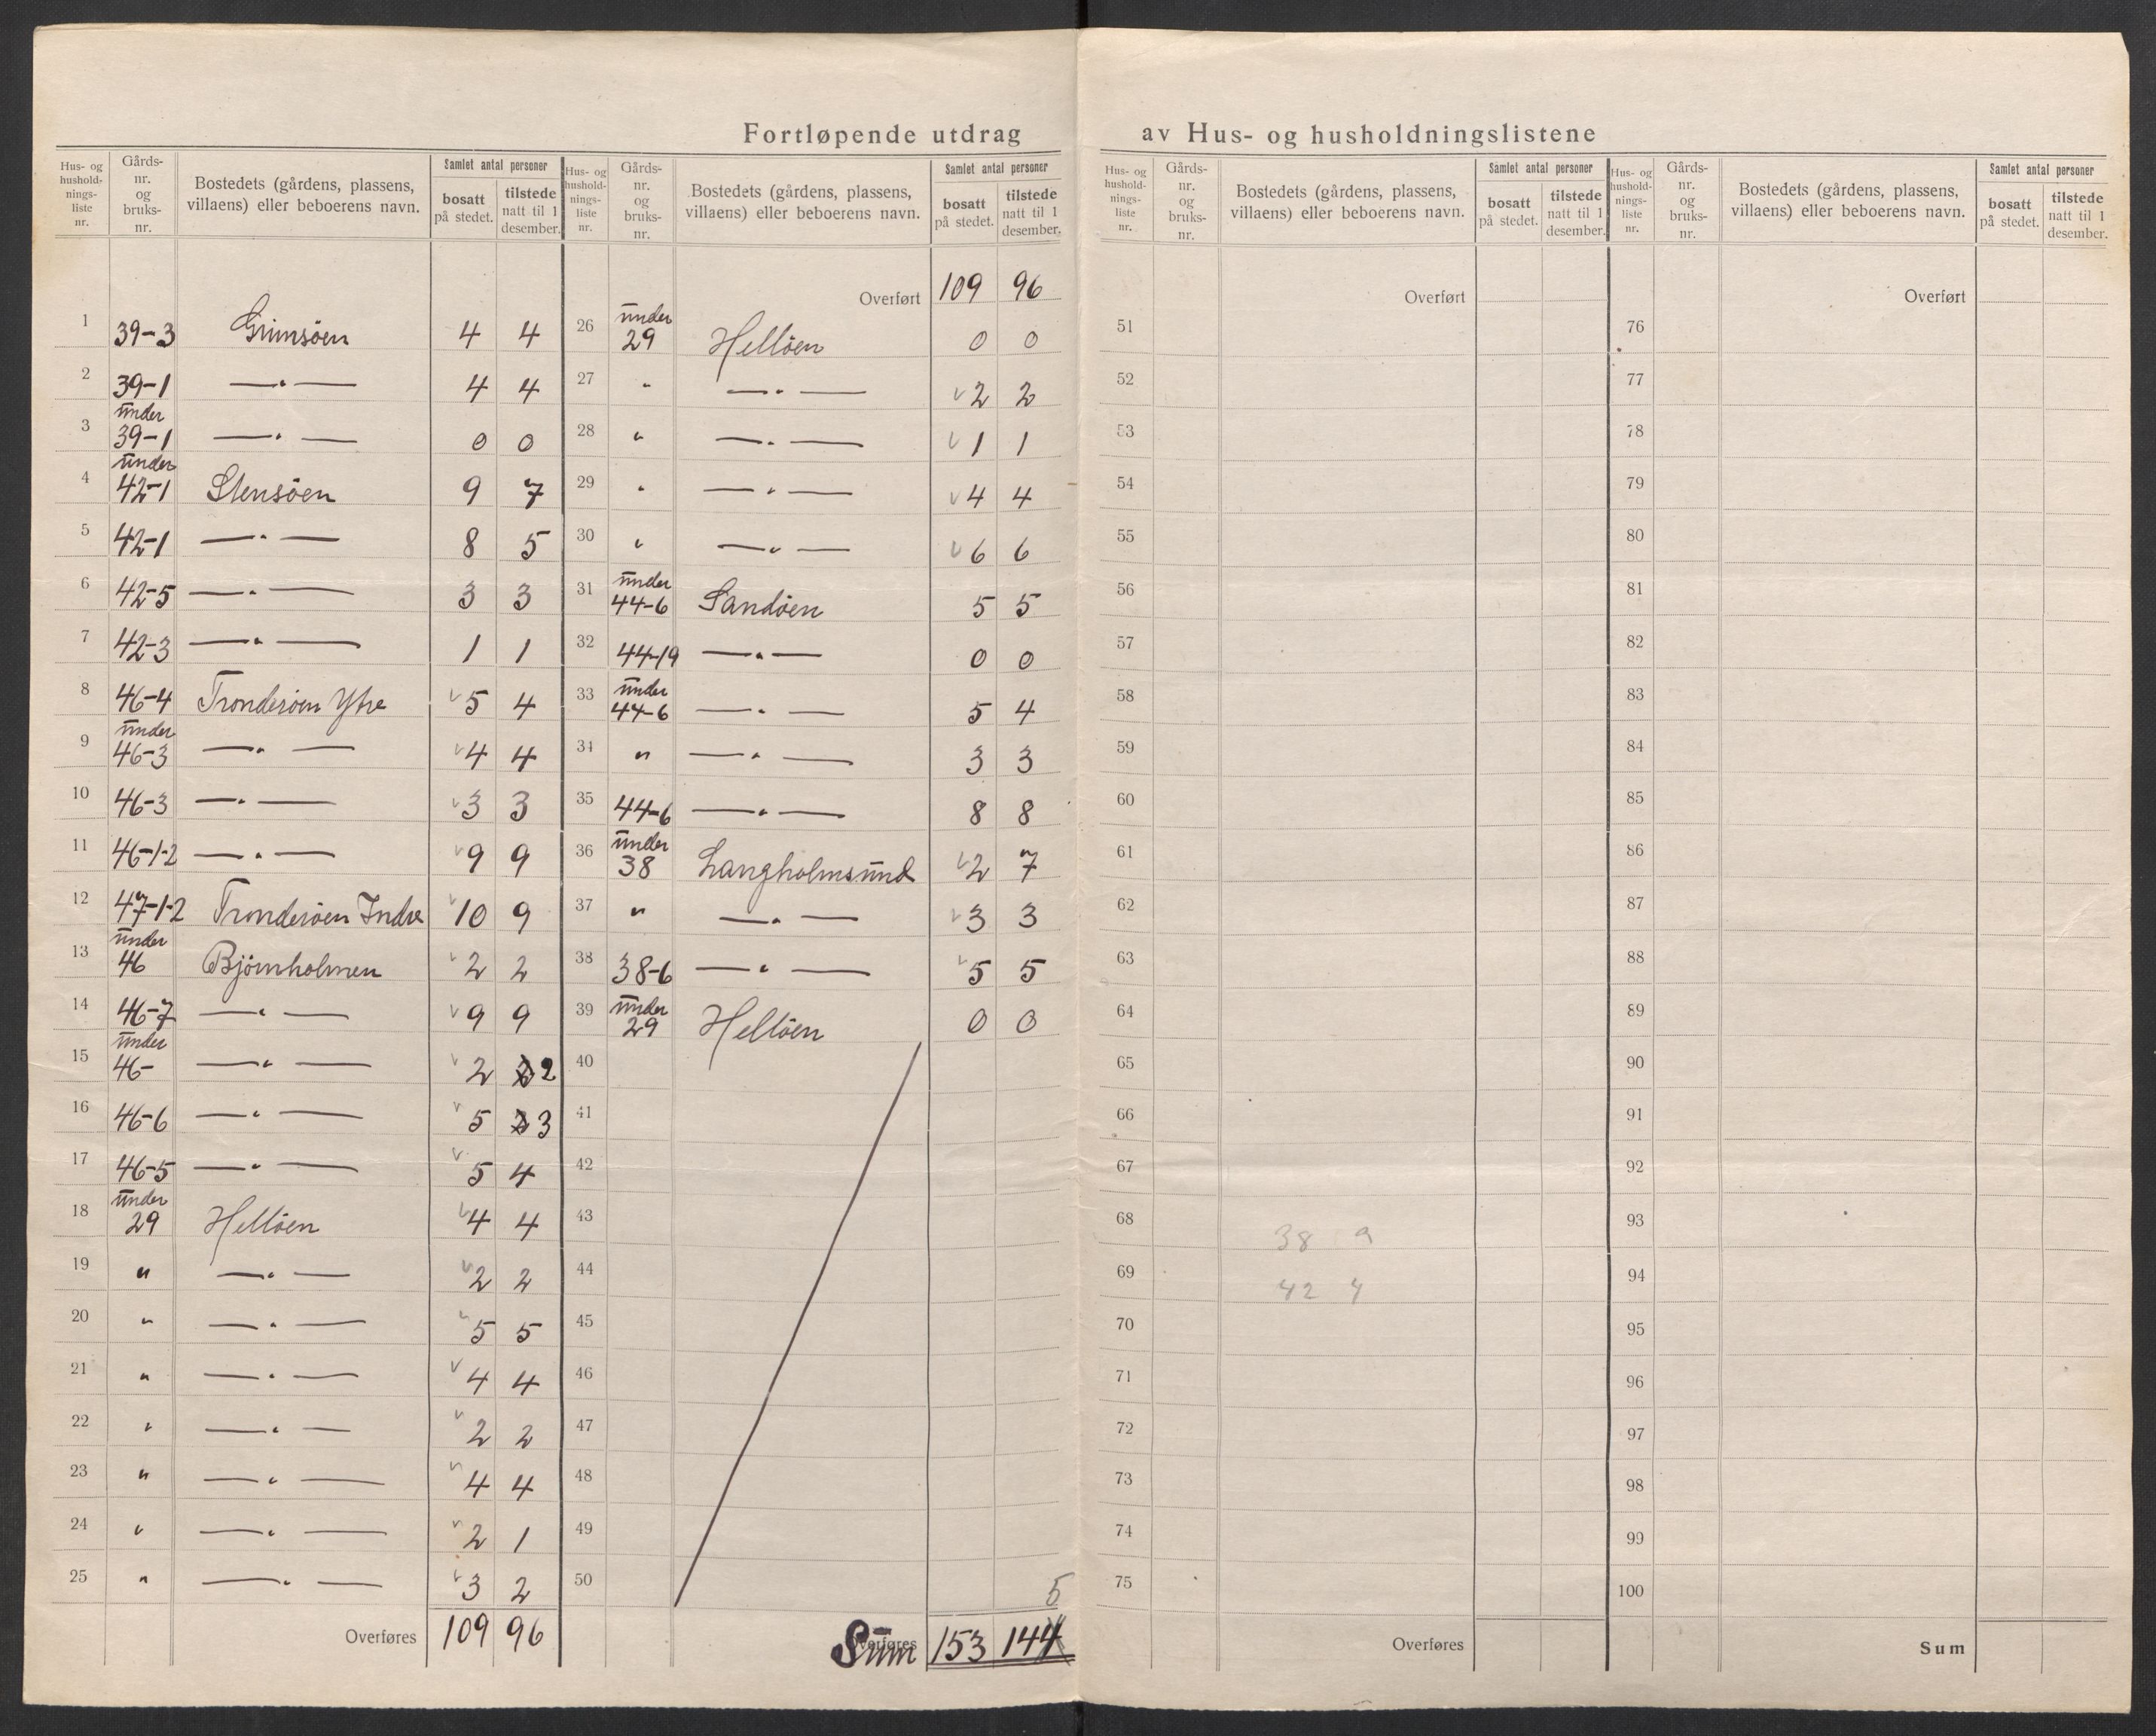 Fortløpende utdrag av Hus- og husholdningslistene
Hus- og husholdnings-liste nr. | Gårds-nr. og bruks-nr. | Bostedets (gårdens, plassens, villaens) eller beboerens navn. | Samlet antal personer | bosatt på stedet. | tilstede natt til 1 desember.
1 39-3 Grimsöen 4 4
2 39-1 —„— 4 4
3 under 39-1 —„— 0 0
4 under 42-1 Stensöen 9 7
5 42-1 —„— 8 5
6 42-5 —„— 3 3
7 42-3 —„— 1 1
8 46-4 Tronderöen Ytre v 5 4
9 under 46-3 —„— v 4 4
10 46-3 —„— v 3 3
11 46-1-2 —„— v 9 9
12 47-1-2 Tronderöen Indre v 10 9
13 under 46 Björnholmen v 2 2
14 46-7 —„— v 9 9
15 under 46- —„— v 2 2
16 46-6 —„— v 5 3
17 46-5 —„— v 5 4
18 under 29 Hellöen v 4 4
19 „ —„— v 2 2
20 „ —„— v 5 5
21 „ —„— v 4 4
22 „ —„— v 2 2
23 „ —„— v 4 4
24 „ —„— v 2 1
25 „ —„— v 3 2
Overføres 109 96
Hus- og husholdnings-liste nr. | Gårds-nr. og bruks-nr. | Bostedets (gårdens, plassens, villaens) eller beboerens navn. | Samlet antal personer | bosatt på stedet. | tilstede natt til 1 desember.
Overført 109 96
26 under 29 Hellöen 0 0
27 „ —„— v 2 2
28 „ —„— v 1 1
29 „ —„— v 4 4
30 „ —„— v 6 6
31 under 44-6 Sandöen 5 5
32 44-19 —„— 0 0
33 under 44-6 —„— 5 4
34 „ —„— 3 3
35 44-6 —„— 8 8
36 under 38 Langholmsund v 2 7
37 „ —„— v 3 3
38 38-6 —„— v 5 5
39 under 29 Hellöen 0 0
40
41
42
43
44
45
46
47
48
49
50
5
Overføres Sum 153 144
Hus- og husholdnings-liste nr. | Gårds-nr. og bruks-nr. | Bostedets (gårdens, plassens, villaens) eller beboerens navn. | Samlet antal personer | bosatt på stedet. | tilstede natt til 1 desember.
Overført
51
52
53
54
55
56
57
58
59
60
61
62
63
64
65
66
67
68 38 9
69 42 4
70
71
72
73
74
75
Overføres
Hus- og husholdnings-liste nr. | Gårds-nr. og bruks-nr. | Bostedets (gårdens, plassens, villaens) eller beboerens navn. | Samlet antal personer | bosatt på stedet. | tilstede natt til 1 desember.
Overført
76
77
78
79
80
81
82
83
84
85
86
87
88
89
90
91
92
93
94
95
96
97
98
99
100
Sum